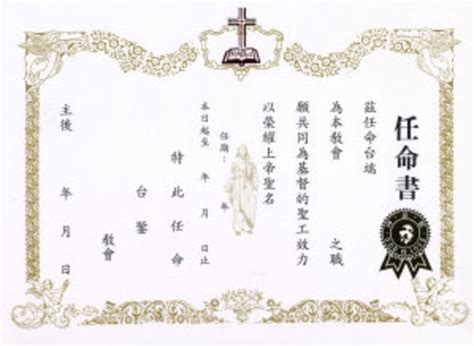 任命書
茲任命台端
為本教會 之職
願共同為基督的聖工效力
以榮耀上帝聖名
任期： 年
本日起至 年 月 日止
特此任命
台鑒
教會
主後 年 月 日